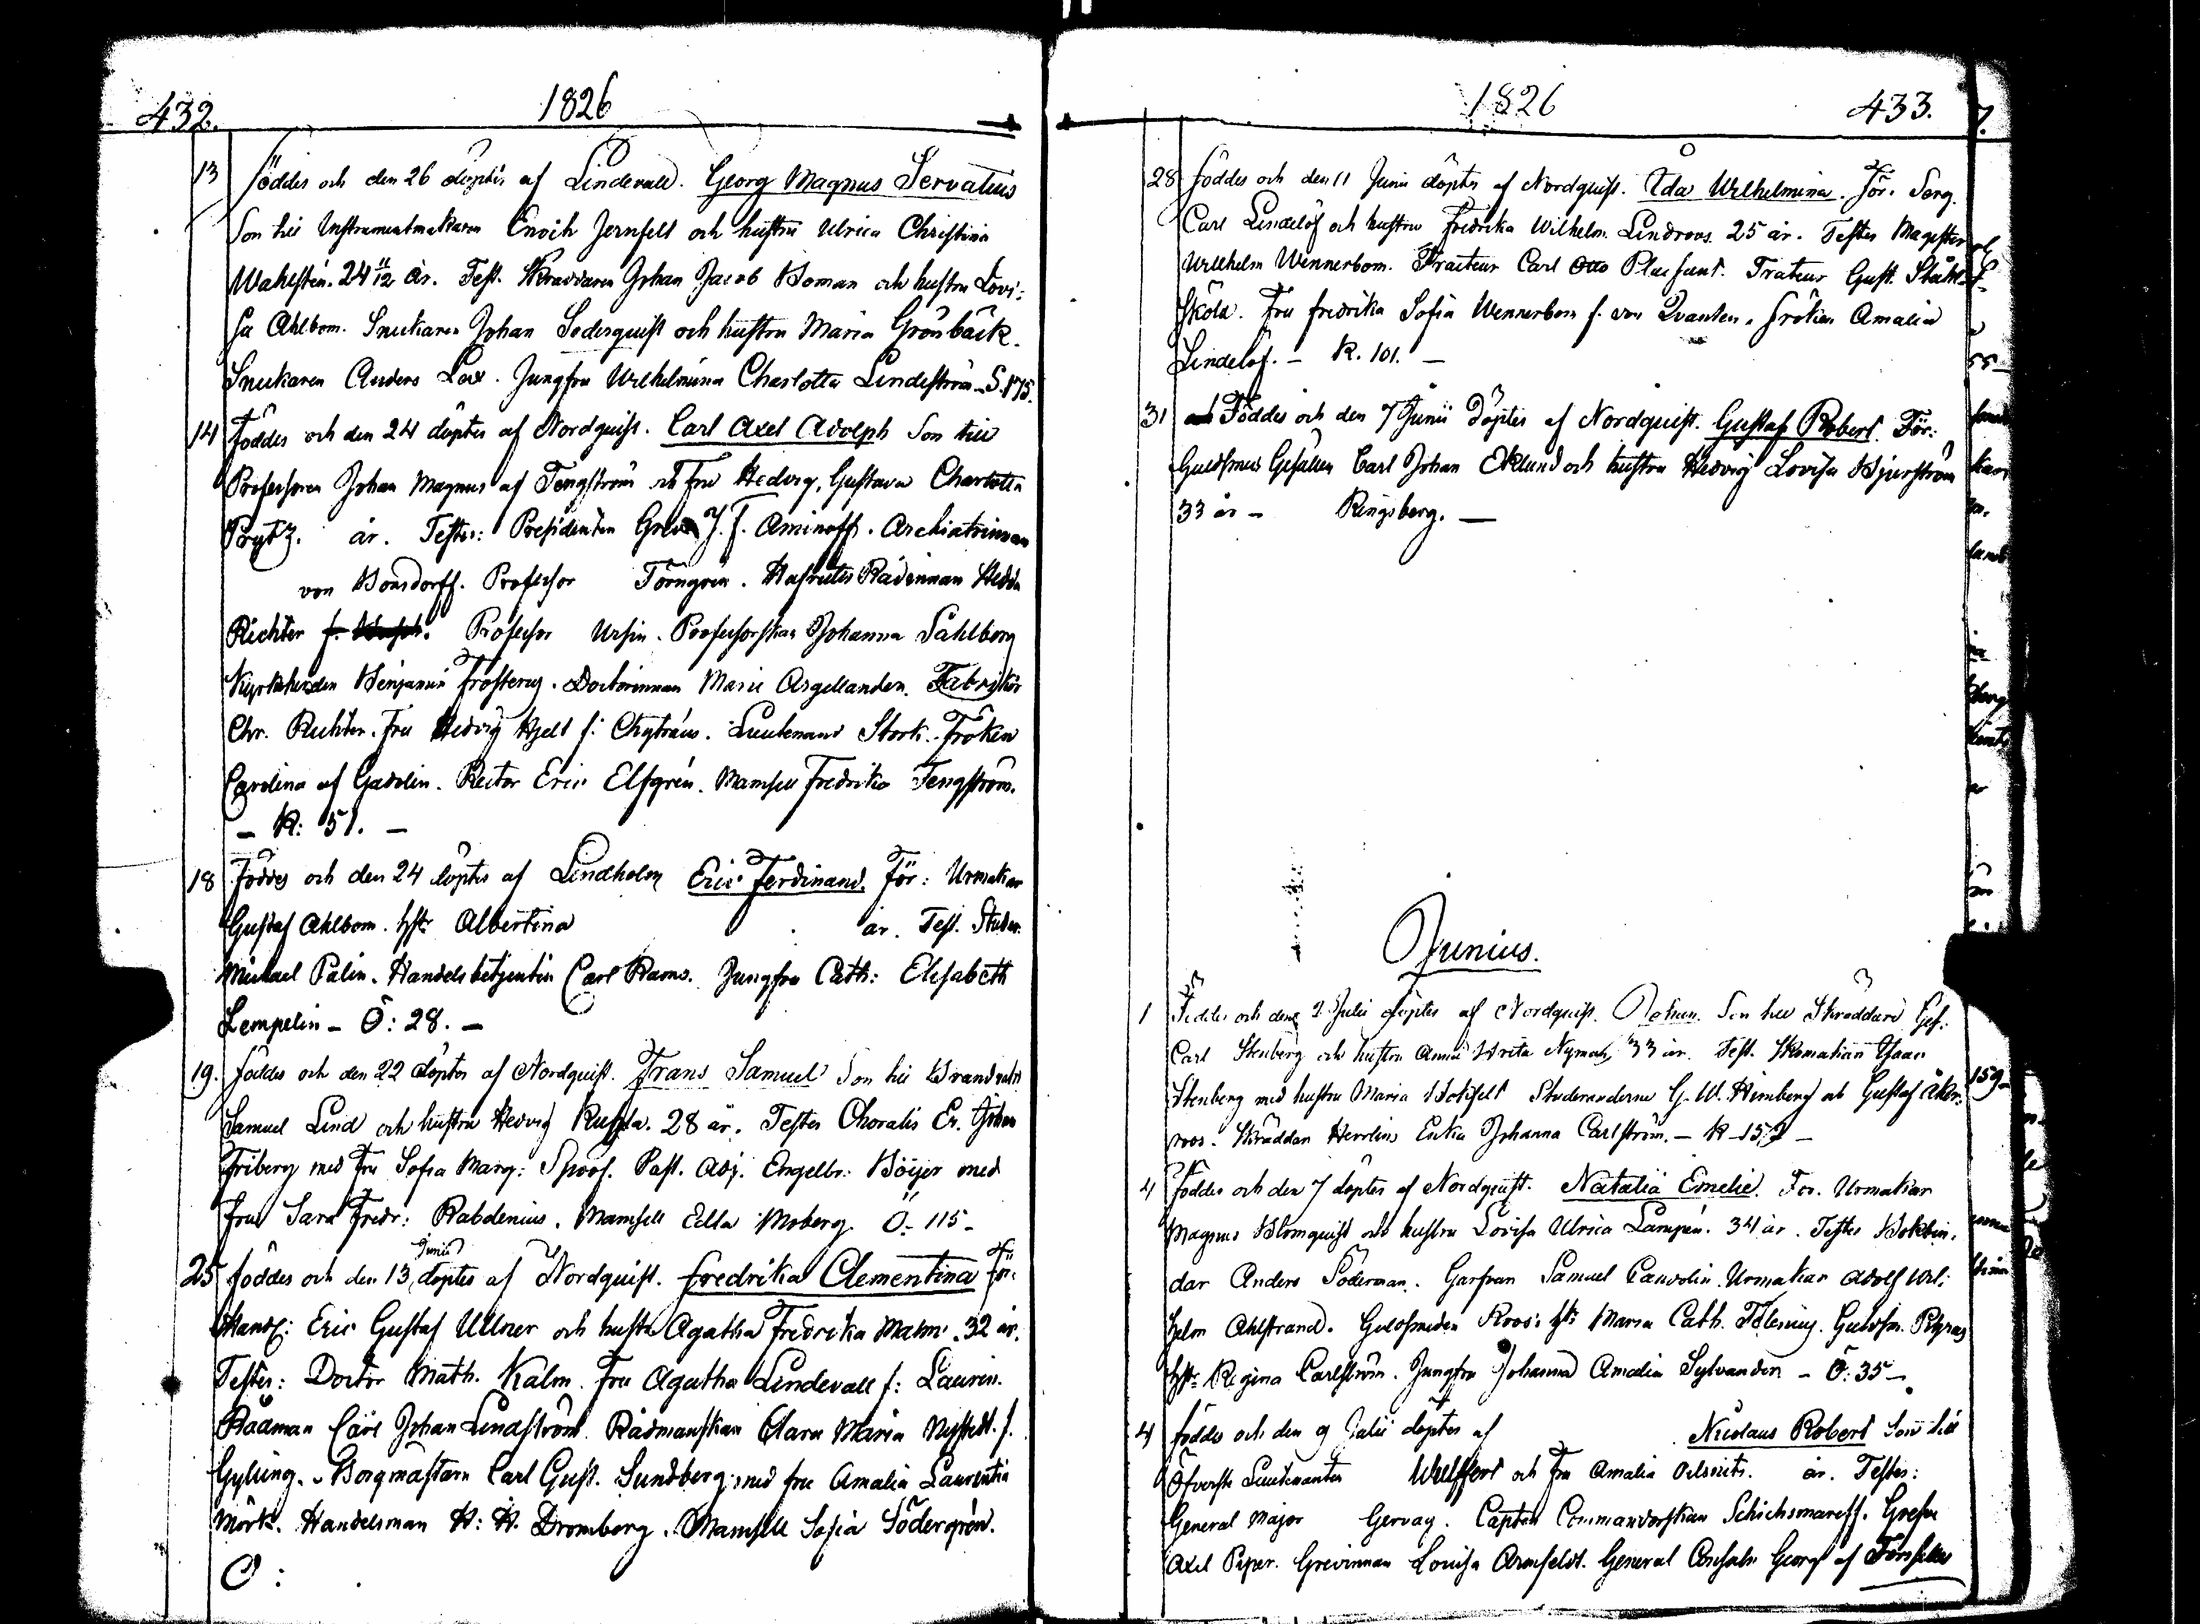 432. 1826
13 föddes och den 26 döptes af Lindevall. Georg Magnus Servatius
Son till Instrumentmakaren Enoch Jernfelt och hustru Ulrica Christina
Wahlsten. 24 11/12 år. Test. Skräddaren Johan Jacob Boman och hustru Lovi-
sa Ahlbom. Snickaren Johan Söderquist och hustru Maria Grönbäck.
Snickaren Anders Lax. Jungfru Wilhelmina Charlotta Lindeström - S. 175.
14 Föddes och den 24 döptes af Nordquist. Carl Axel Adolph Son till
Professoren Johan Magnus af Tengström och Fru Hedvig Gustava Charlotta
Prytz. år. Testes: Presidenten Grefve J. F. Aminoff. Archiatrinnan
von Bonsdorff. Professor Törngren. Hofrätts Rådinnan Hedda
Richter Professor Ursin. Professorskan Johanna Sahlberg
Kyrkoherden Benjamin Frosterus. Doctorinnan Marie Argellander. Fabrikör
Chr. Richter. Fru Hedvig Hjelt f: Chytraeus. Lieutenant Stork. Fröken
Carolina af Gadolin. Rector Eric Elfgren. Mamsell Fredrika Tengström.
- K: 51. -
18 Föddes och den 24 döptes af Lindholm Eric Ferdinand. För: Urmakar
Gustaf Ahlbom. hstr Albertina år. Test. Studer.
Michael Palin. Handelsbetjenten Carl Rams. Jungfru Cath: Elisabeth
Lempelin - Ö: 28. -
19. föddes och den 22 döptes af Nordquist. Frans Samuel Son till Brandvakt
Samuel Lind och hustru Hedvig Russla. 28 år. Testes Choralis Er. Johan
Friberg med Fru Sofia Marg: Spoof. Past. Adj. Engelbr. Böijer med
Fru Sara Fredr: Rabdenius. Mamsell Edla Moberg. Ö: 115 -
25 föddes och den 13 Junii döptes af Nordquist. Fredrika Clementina För:
Eric Gustaf Ullner och hustru Agatha Fredrika Malm. 32 år.
Testes: Doctor Math. Kalm. Fru Agatha Lindevall f: Lauren.
Rådman Carl Johan Lindström. Rådmanskan Clara Maria Nystedt. f.
Gylling. Borgmästarn Carl Gust. Sundberg med fru Amalia Laurentia
Mörk. Handelsman H: H. Dromberg. Mamsell Sofia Södergrén.
Ö:
1826 433.
28 föddes och den 11 Junii döptes af Nordquist. Ida Wilhelmina. För. Serg.
Carl Lindelöf och hustru Fredrika Wilhelm. Lindroos. 25 år. Testes Magister
Willhelm Wennerbom. Tracteur Carl Otto Plaisant. Trateur Gust. Stähl-
sköld. Fru Fredrika Sofia Wennerbom f. von Qvanten. Fröken Amalia
Lindelöf. - K. 101. -
31 Föddes och den 7 Junii Döptes af Nordquist. Gustaf Robert. För:
Guldsmeds Gesällen Carl Johan Eklund och hustru Hedvig Lovisa Bjurström
33 år - Ringsberg. -
Junius.
1 Föddes och den 2 Julii döptes af Nordquist. Johan. Son till Skräddare Ges:
Carl Stenberg och hustru Anna Brita Nyman 33 år. Test. Skomakarn Isaac
Stenberg med hustru Maria Studeranderne G. W. Himberg och Gustaf Åker-
roos. Skräddar Herrlin. Enka Johanna Carlström. - K - 157 -
4 föddes och den 7 döptes af Nordquist. Natalia Emelie. För. Urmakar
Magnus Blomquist och hustru Lovisa Ulrica Lampén. 34 år. Testes Bokbin-
dar Anders Söderman. Garfvar Samuel Urmakar Adolf Wil-
helm Ahlstrand. Guldsmeden Roos: hstr Maria Cath. Idlenius. Guldsm.
hstr Regina Carlström. Jungfru Johanna Amalia Sylvander - Ö: 35 -
4 föddes och den 9 Julii döptes af Nicolaus Robert Son till
Öfverste Lieutenanten Wulffert och Fru Amalia år. Testes:
General Major Gervay. Capten Commandorskan Grefve
Axel Piper. Grevinnan Lovisa Armfeldt. General Georg af
159